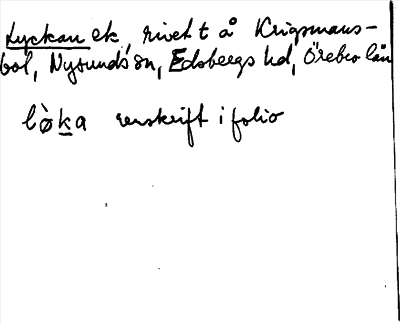 Lyckan ek, rivet t å Krigsmans-
bol, Nysunds sn, Edsbergs hd, Örebro län
lò̷ka renskrift i folio